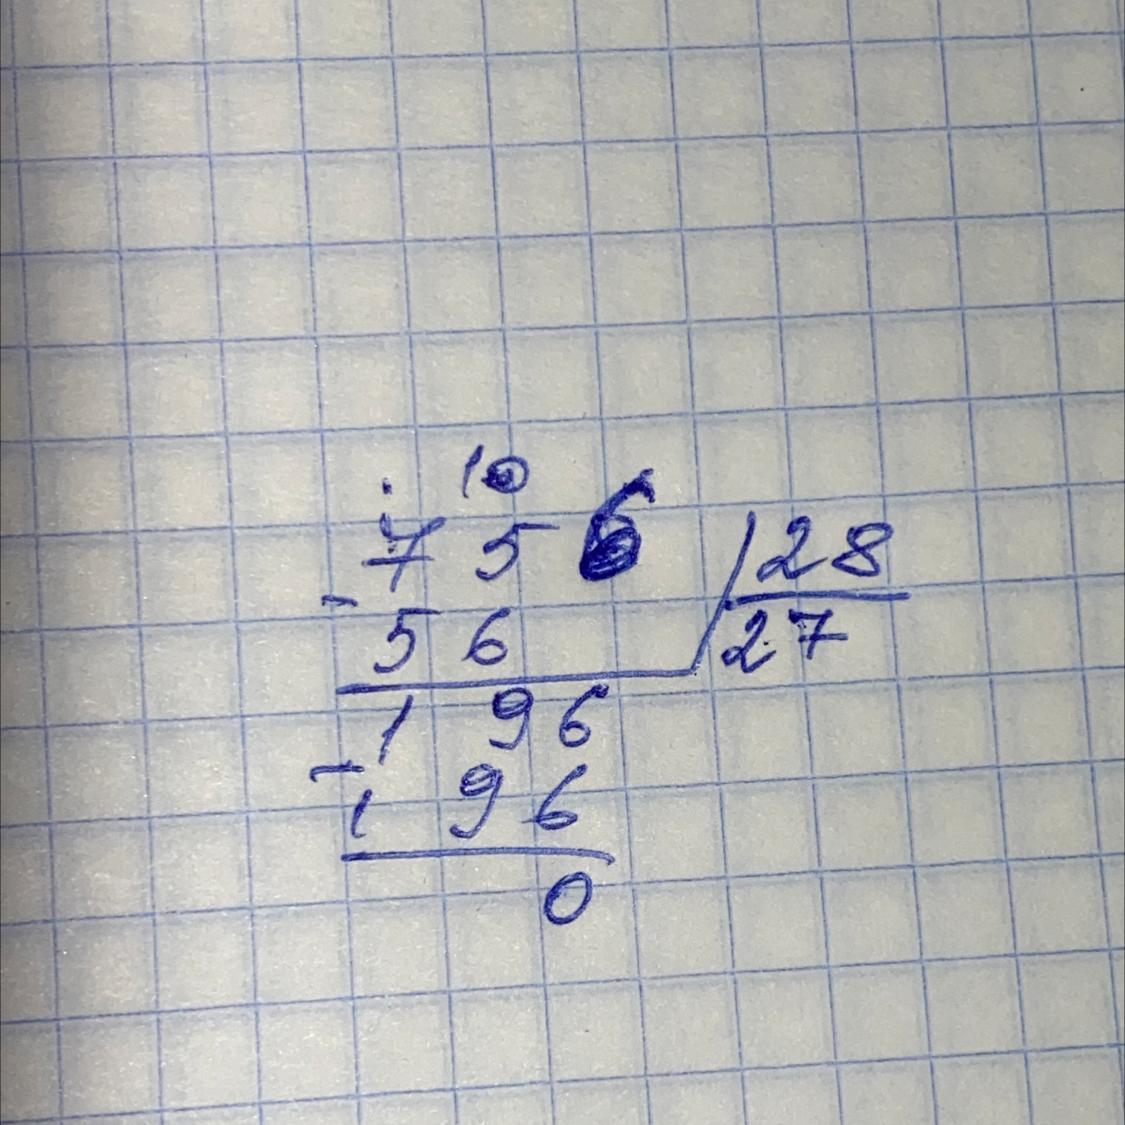 10
756 28
56 27
196
196
0